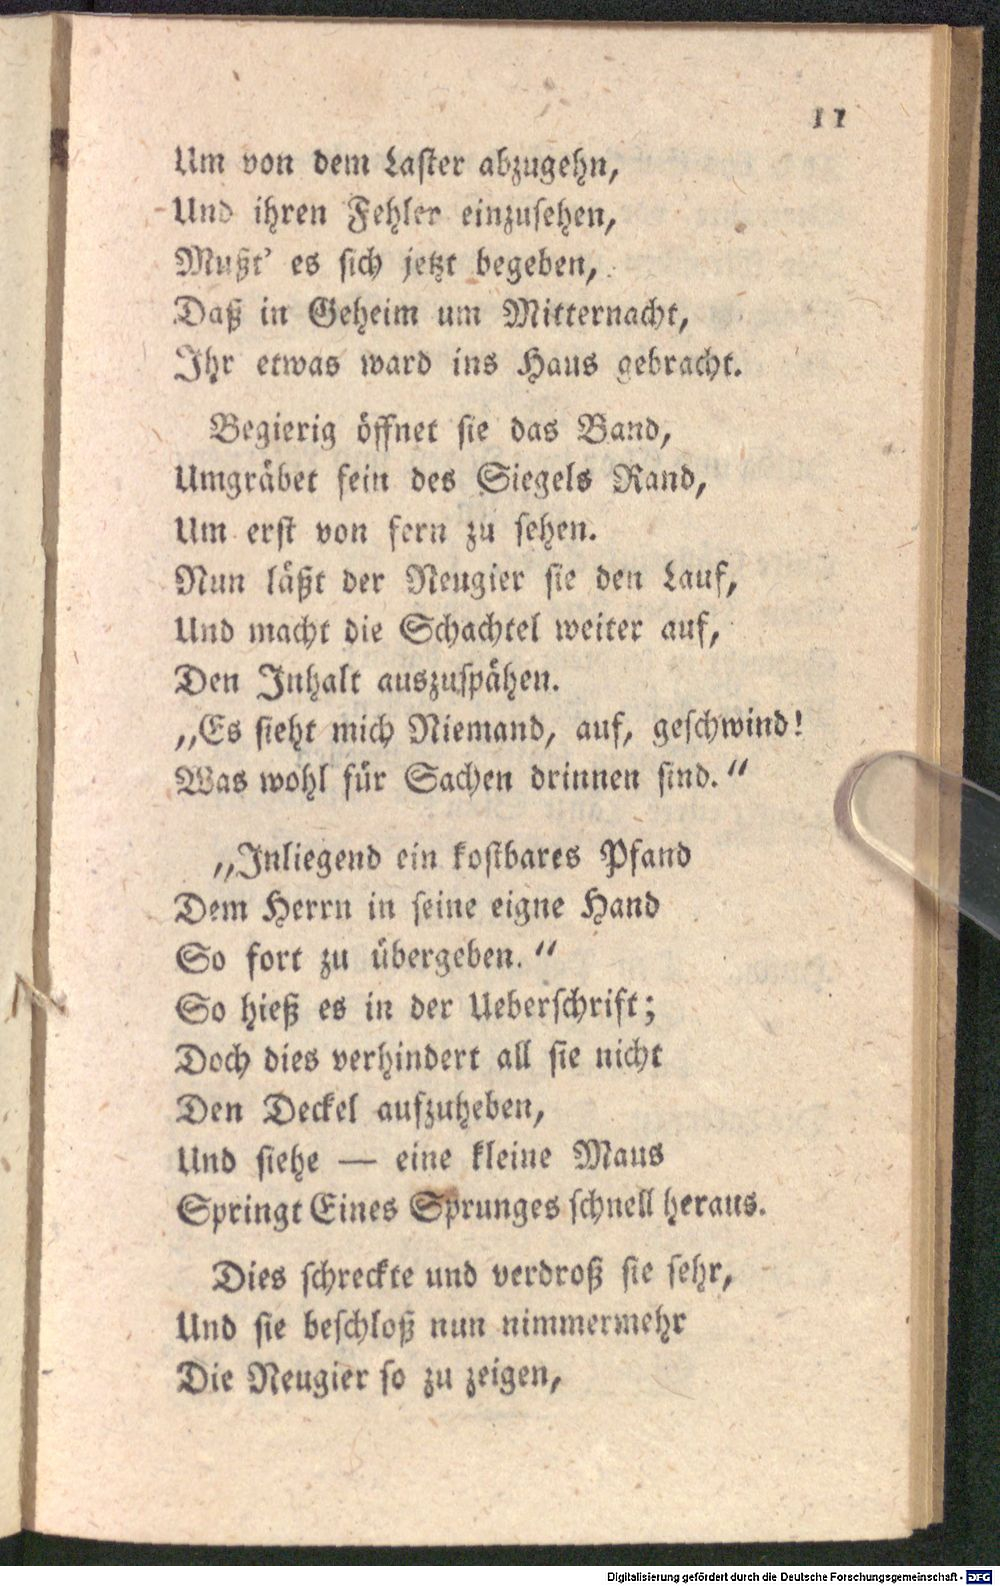 11
Um von dem Laster abzugehn,
Und ihren Fehler einzusehen,
Mußt' es sich jetzt begeben,
Daß in Geheim um Mitternacht,
Ihr etwas ward ins Haus gebracht.
Begierig öffnet sie das Band,
Umgräbet fein des Siegels Rand,
Um erst von fern zu sehen.
Nun läßt der Neugier sie den Lauf,
Und macht die Schachtel weiter auf,
Den Inhalt auszuspähen.
„Es sieht mich Niemand, auf, geschwind!
Was wohl für Sachen drinnen sind.“
„Inliegend ein kostbares Pfand
Dem Herrn in seine eigne Hand
So fort zu übergeben.“
So hieß es in der Ueberschrift;
Doch dies verhindert all sie nicht
Den Deckel aufzuheben,
Und siehe — eine kleine Maus
Springt Eines Sprunges schnell heraus.
Dies schreckte und verdroß sie sehr,
Und sie beschloß nun nimmermehr
Die Neugier so zu zeigen,
Digitalisierung gefördert durch die Deutsche Forschungsgemeinschaft - DFG